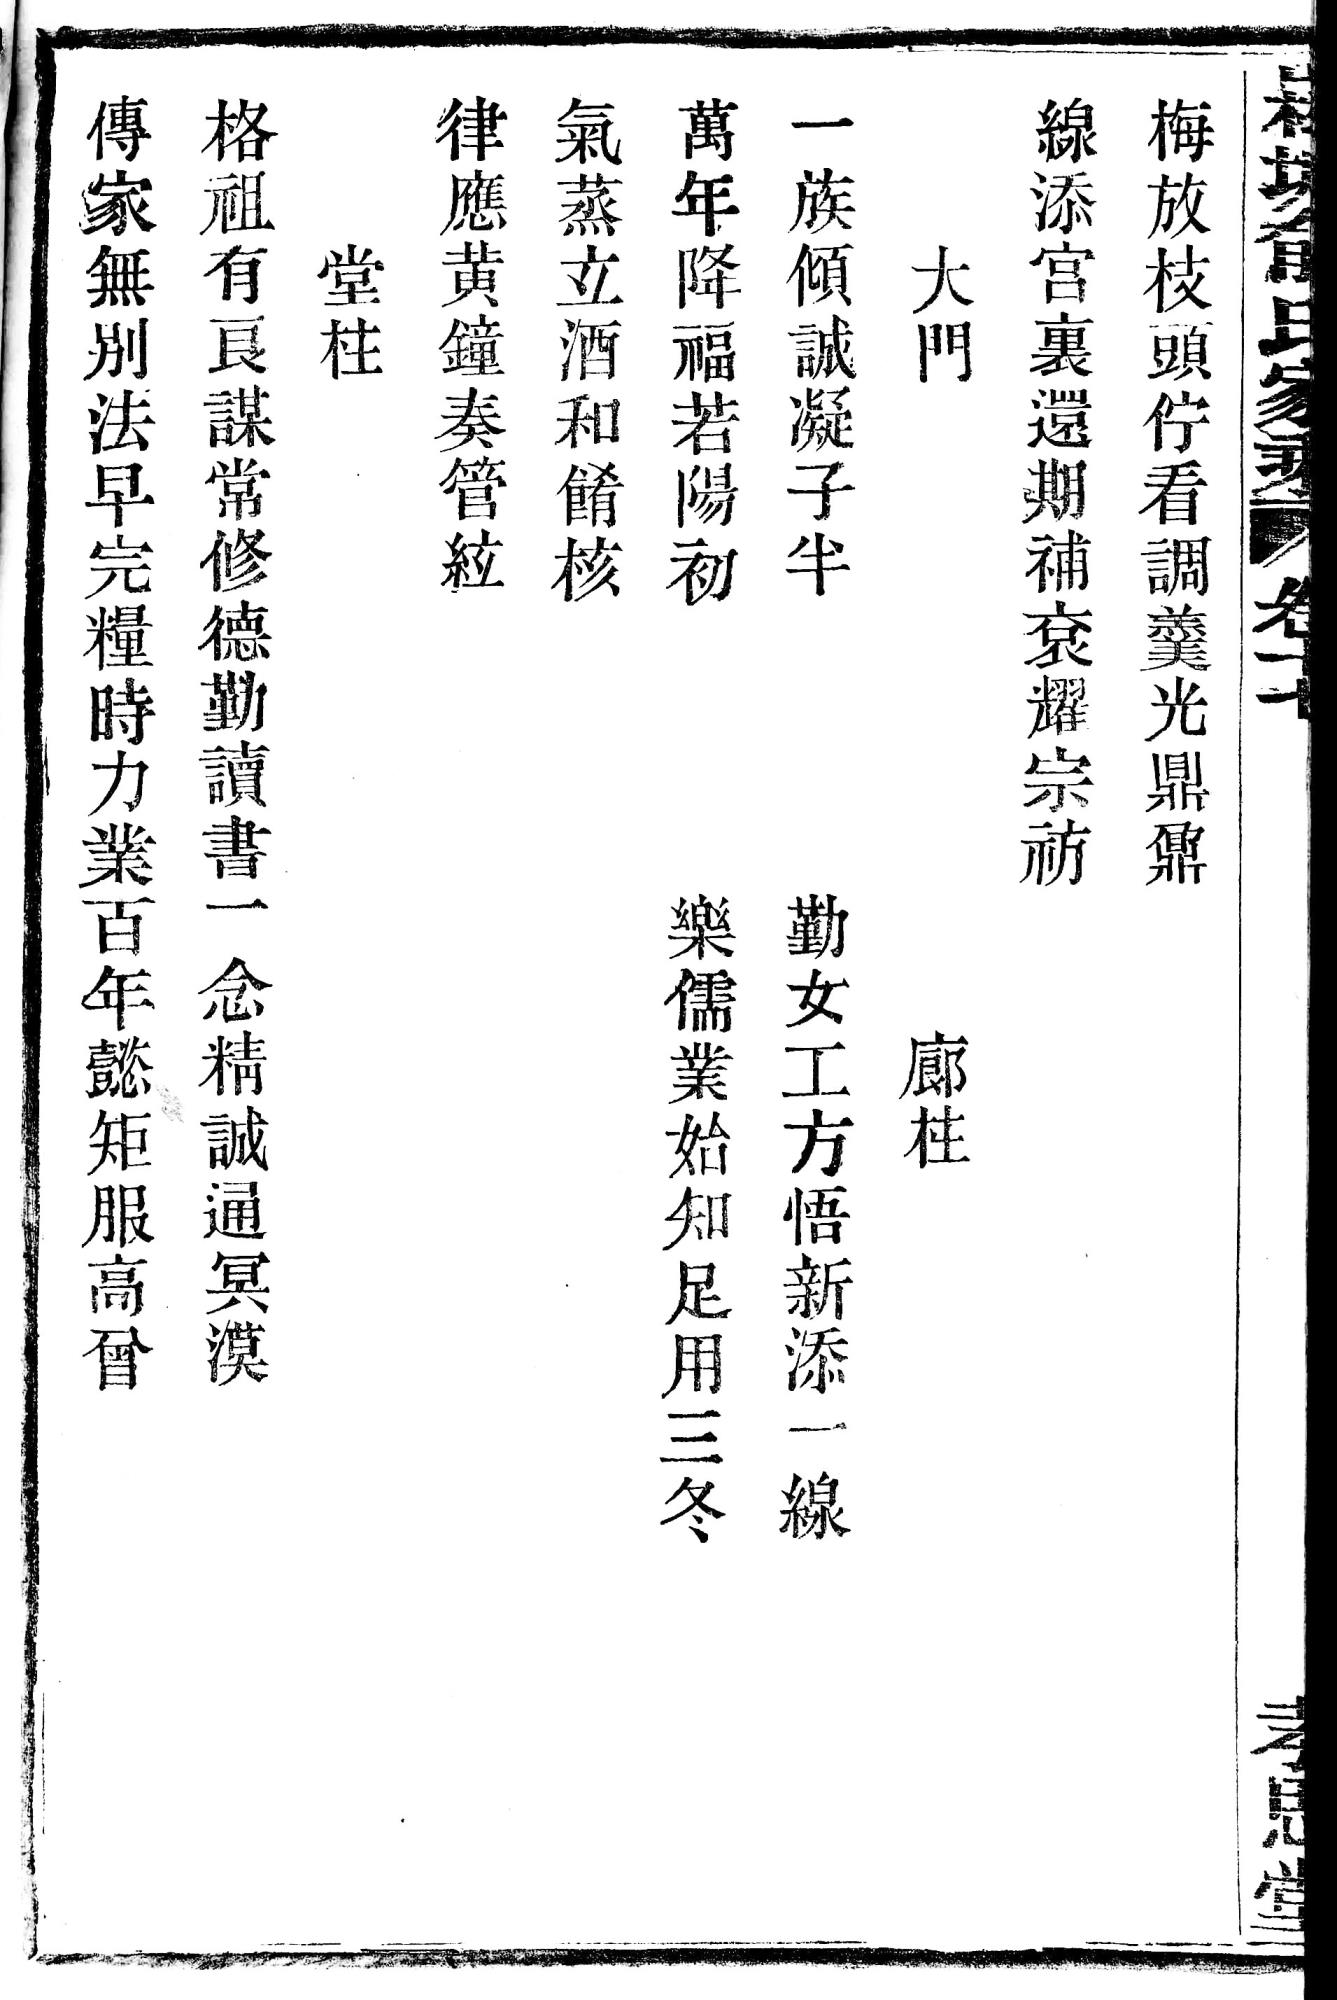 梅放枝頭佇看調羹光鼎鼐
線添宮裏還期補衮耀宗祊
大門
廊柱
一族傾誠凝子半
勤女工方悟新添一線
萬年降福若陽初
樂儒業始知足用三冬
氣蒸立酒和餚核
律應黄鐘奏管絃
堂柱
格祖有良謀常修德勤讀書一念精誠通冥漠
傳家無別法早完糧時力業百年懿矩服高曾
氏家乘
卷十七
孝思堂